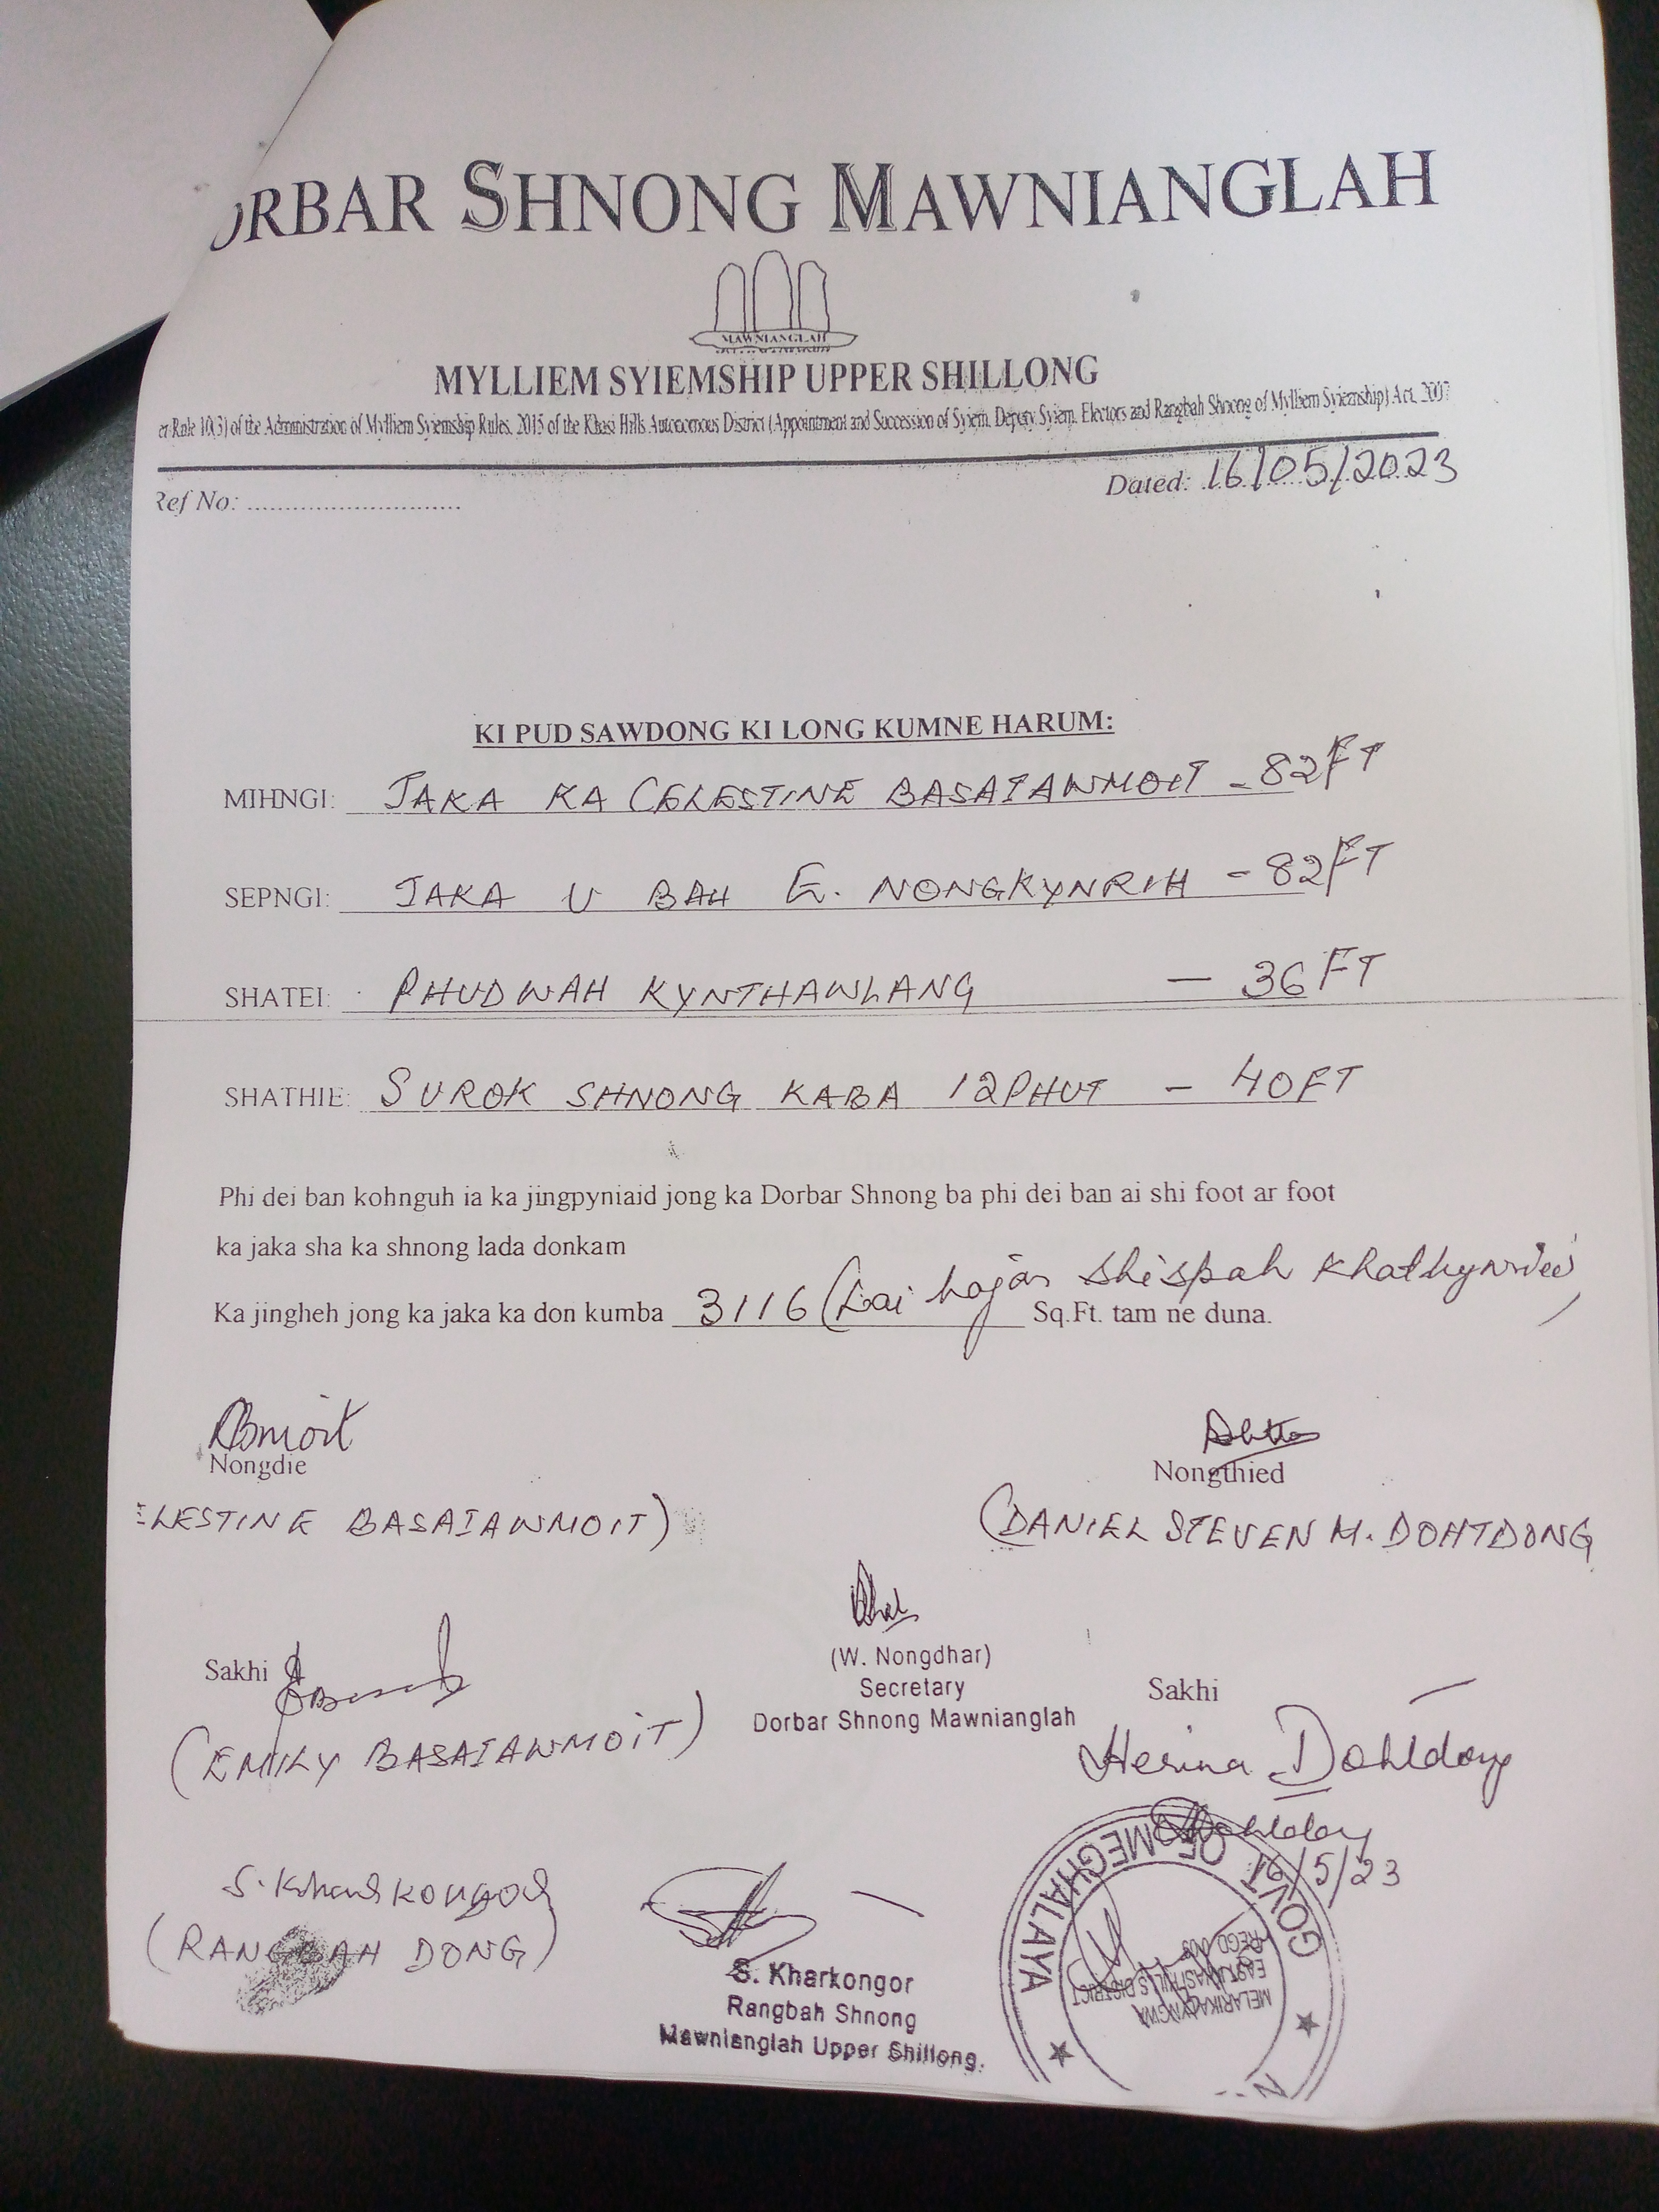 ORBAR SHNONG MAWNIANGLAH
MAWNIANGLAH
MYLLIEM SYIEMSHIP UPPER SHILLONG
er Rule 10(3) of the Administration of Mylliem Syiemship Rules, 2015 of the Khasi Hills Autonomous District (Appointment and Succession of Syiem, Deputy Syiem, Electors and Rangbah Shnong of Mylliem Syiemship) Act, 2007
Ref No: ............................
Dated: 16/05/2023
KI PUD SAWDONG KI LONG KUMNE HARUM:
MIHNGI: JAKA KA CELESTINE BASAIAWMOIT - 82FT
SEPNGI: JAKA U BAH E. NONGKYNRIH - 82FT
SHATEI: PHUDWAH KYNTHAWLANG — 36FT
SHATHIE: SUROK SHNONG KABA 12PHUT - 40FT
Phi dei ban kohnguh ia ka jingpyniaid jong ka Dorbar Shnong ba phi dei ban ai shi foot ar foot
ka jaka sha ka shnong lada donkam
Ka jingheh jong ka jaka ka don kumba 3116 (Lai hajar shispah khathynriew) Sq.Ft. tam ne duna.
Nongdie
Nongthied
ELESTINE BASAIAWMOIT)
(DANIEL STEVEN M. DOHTDONG
(W. Nongdhar)
Secretary
Dorbar Shnong Mawnianglah
Sakhi
(EMILY BASAIAWMOIT)
Sakhi
Herina Dohtdong
16/5/23
S. Kharkongor
(RANGBAH DONG)
S. Kharkongor
Rangbah Shnong
Mawnianglah Upper Shillong.
GOVT. OF MEGHALAYA
EAST KHASI HILLS DISTRICT